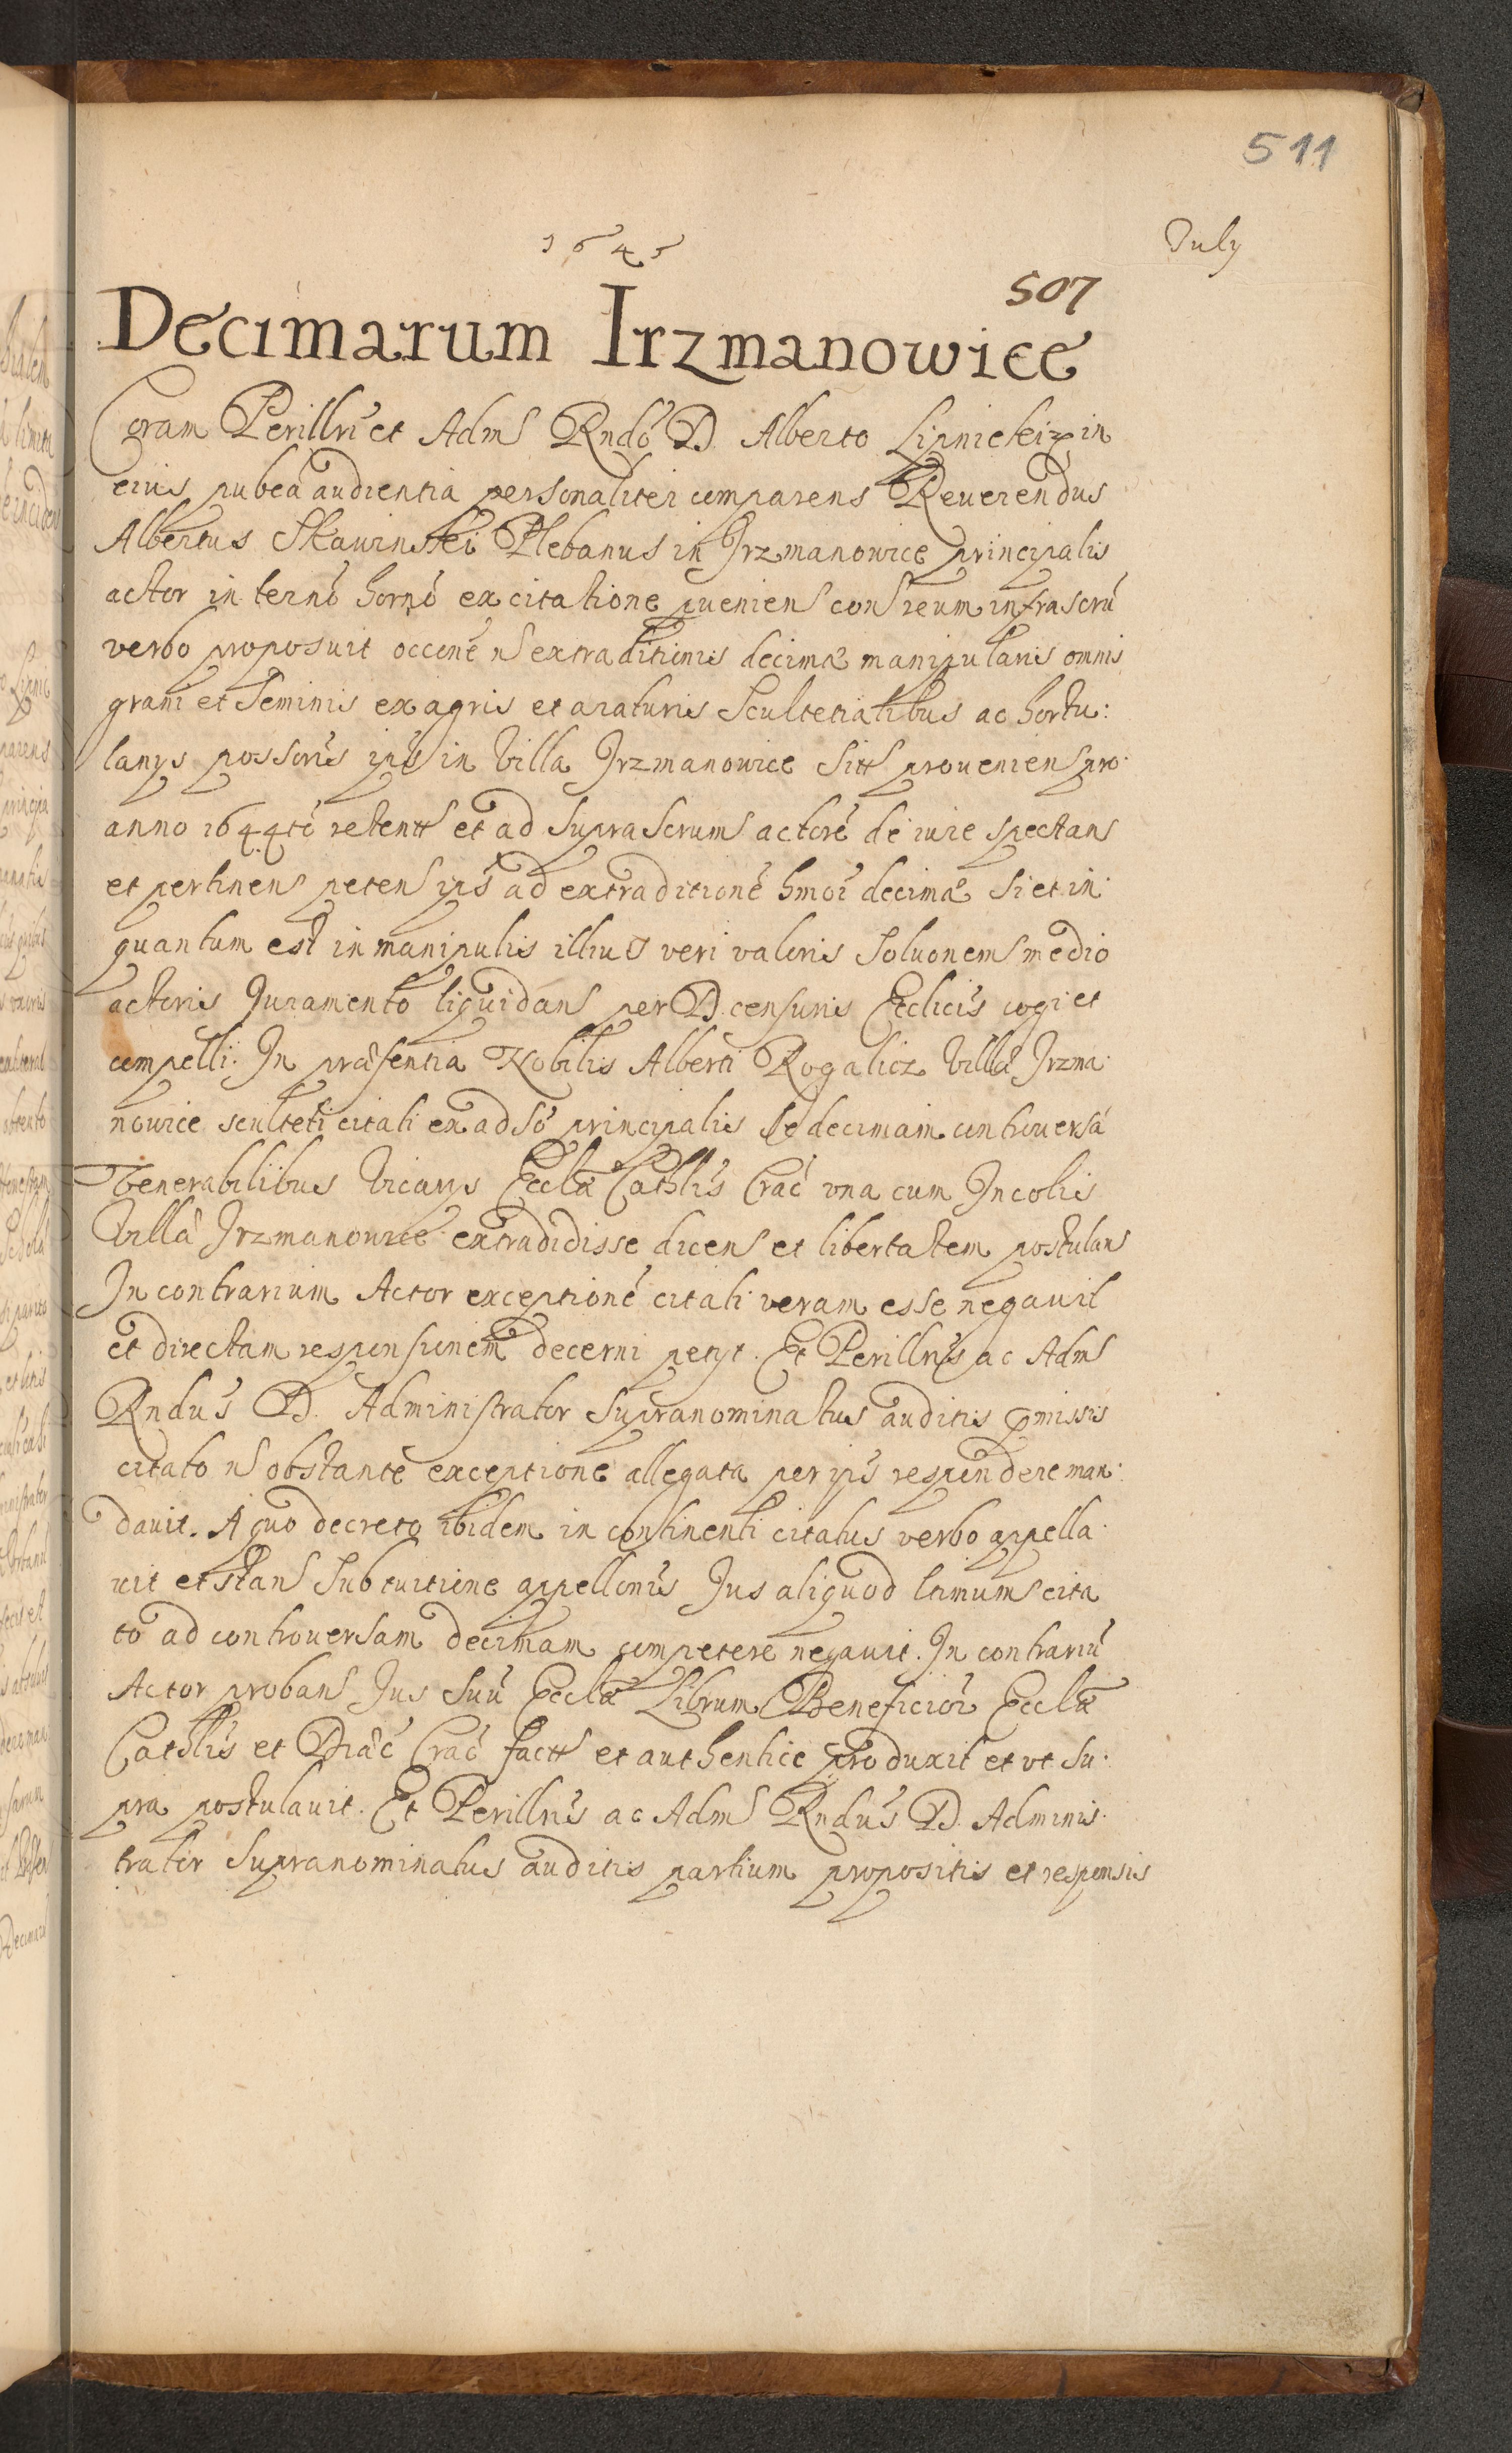 511
1645
July
507
Decimarum Irzmanowice
Coram Perillri et Adm Rndo D. Alberto Lipnicki in
eius pubca audientia personaliter comparens Reuerendus
Albertus Skawinski Plebanus in Irzmanowice principalis
actor in termo horno ex citatione pueniens con reum infrascru
verbo proposuit occone n extraditionis decimæ manipularis omnis
grani et seminis ex agris et araturis Scultetialibus ac hortu:
lanys possoris ips in Villa Irzmanowice sitt prouenien pro
anno 1644to retent et ad suprascrum actore de iure spectans
et pertinens peten ips ad extraditione hmoi decimæ si et in
quantum est in manipulis illius veri valoris soluonem medio
actoris Juramento liquidan per D. censuris Ecclicis cogi et
compelli. In præsentia Nobilis Alberti Rogalicz Villæ Irzma
nowice sculteti citati ex adso principalis se decimam controuersa
Venerabilibus Vicarys Ecclæ Cathlis Crac vna cum Incolis
Villæ Irzmanowice extradidisse dicens et libertatem postulans
In contrarium Actor exceptione citati veram esse negauit
et directam responsionem decerni petyt. Et Perillris ac Adm
Rndus D. Administrator supranominatus auditis pmissis
citato n obstante exceptione allegata per ips respondere man:
dauit. A quo decreto ibidem in continenti citatus verbo appella
uit et stans sub tuitione appellonis Jus aliquod ltimum cita
to ad controuersam decimam competere negauit. In contrariu
Actor probans Jus suu Ecclæ Librum Beneficior Ecclæ
Cathlis et Diæc Crac fact et authentice produxit et vt su:
pra postulauit. Et Perillris ac Adm Rndus D. Adminis:
trator supranominatus auditis partium propositis et responsis